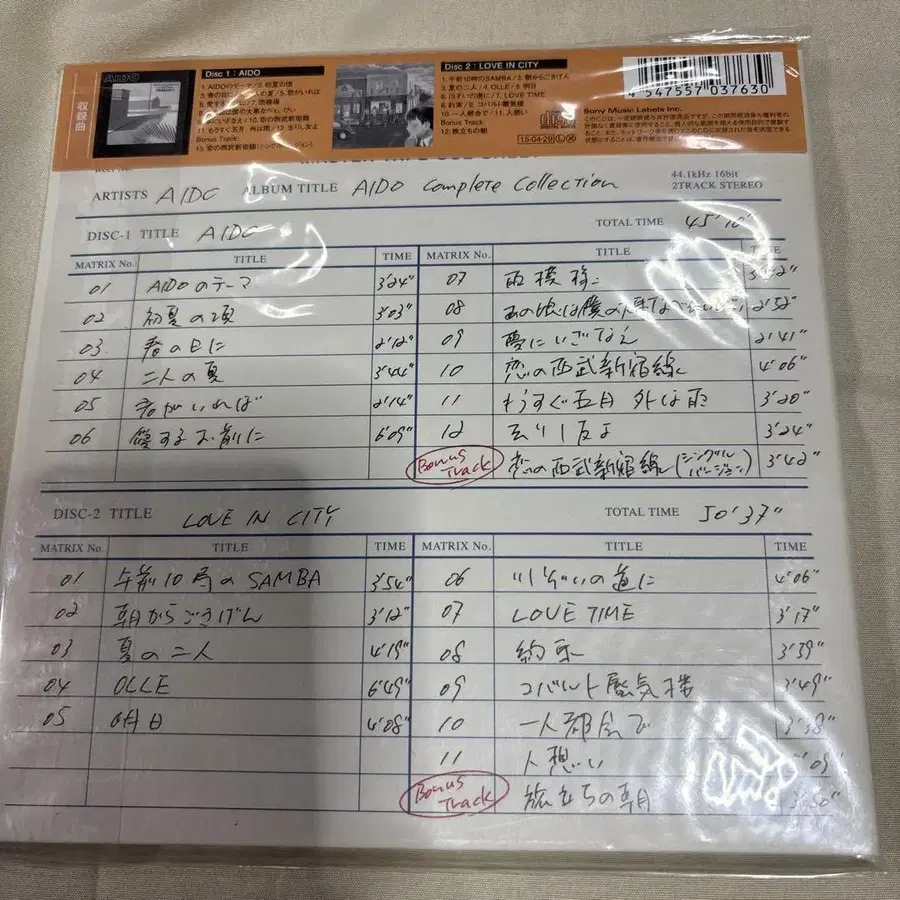 収録曲
AIDO
Disc 1 : AIDO
1. AIDOのテーマ / 2. 初夏の頃
Bonus Track
13. 恋の西武新宿線(シングルバージョン)
Disc 2 : LOVE IN CITY
1. 午前10時のSAMBA / 2. 朝からごきげん
3. 夏の二人 / 4. OLLE / 5. 明日
6. 川ぞいの道に / 7. LOVE TIME
8. 約束 / 9. コバルト蜃気楼
10. 一人都会で / 11. 人想い
Bonus Track
12. 旅立ちの朝
4 547557 037630
Sony Music Labels Inc.
15-04-29
ARTISTS AIDO ALBUM TITLE AIDO Complete Collection
44.1kHz 16bit
2TRACK STEREO
DISC-1 TITLE AIDO TOTAL TIME 45'10"
MATRIX No. TITLE TIME MATRIX No. TITLE TIME
01 AIDOのテーマ 3'24" 07
02 初夏の頃 3'03" 08 2'52"
03 春の日に 2'12" 09 2'41"
04 二人の夏 3'44" 10 恋の西武新宿線 4'06"
05 君がいれば 2'14" 11 もうすぐ五月 外は雨 3'20"
06 愛するお前に 6'09" 12 去りし友よ 3'24"
Bonus Track 恋の西武新宿線(シングルバージョン) 3'42"
DISC-2 TITLE LOVE IN CITY TOTAL TIME 50'37"
MATRIX No. TITLE TIME MATRIX No. TITLE TIME
01 午前10時のSAMBA 3'54" 06 川ぞいの道に 4'06"
02 朝からごきげん 3'12" 07 LOVE TIME 3'17"
03 夏の二人 4'19" 08 約束 3'39"
04 OLLE 6'49" 09 コバルト蜃気楼 3'49"
05 明日 4'08" 10 一人都会で 3'38"
11 人想い
Bonus Track 旅立ちの朝 3'50"